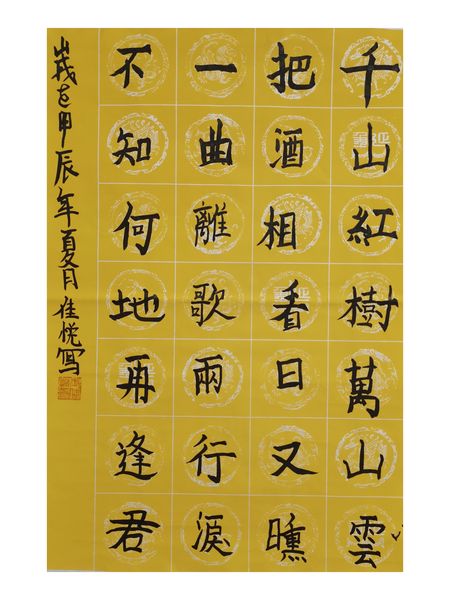 千山紅樹萬山雲
把酒相看日又曛
一曲離歌兩行淚
不知何地再逢君
歲在甲辰年夏月佳悅寫